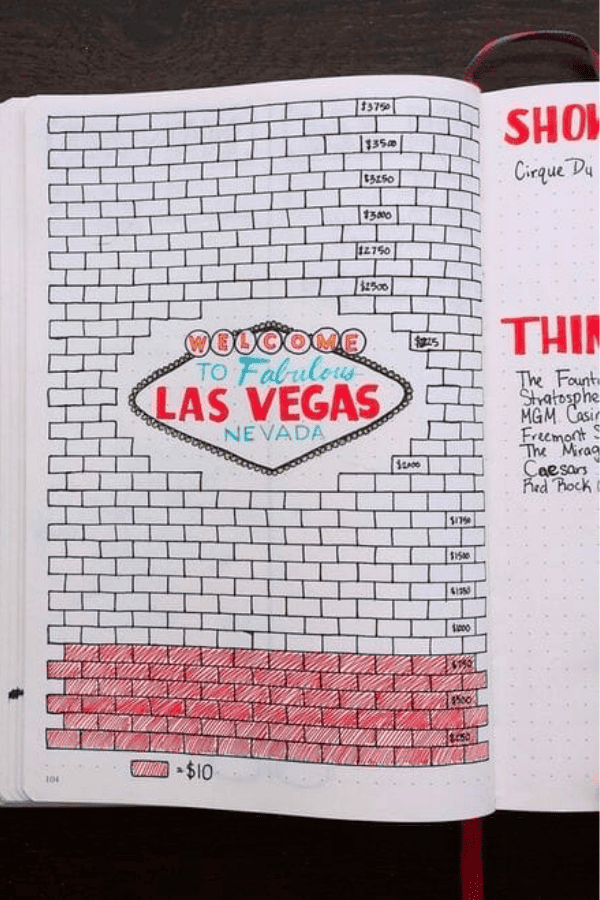 $3750
$3500
$3250
$3000
$2750
$2500
WELCOME
TO Fabulous
LAS VEGAS
NEVADA
$2000
$1750
$1500
$1250
$1000
$750
$500
$250
= $10
104
SHOW
Cirque Du
THIN
The Fount
Stratosphe
MGM Casin
Freemont S
The Mirag
Caesars
Red Rock